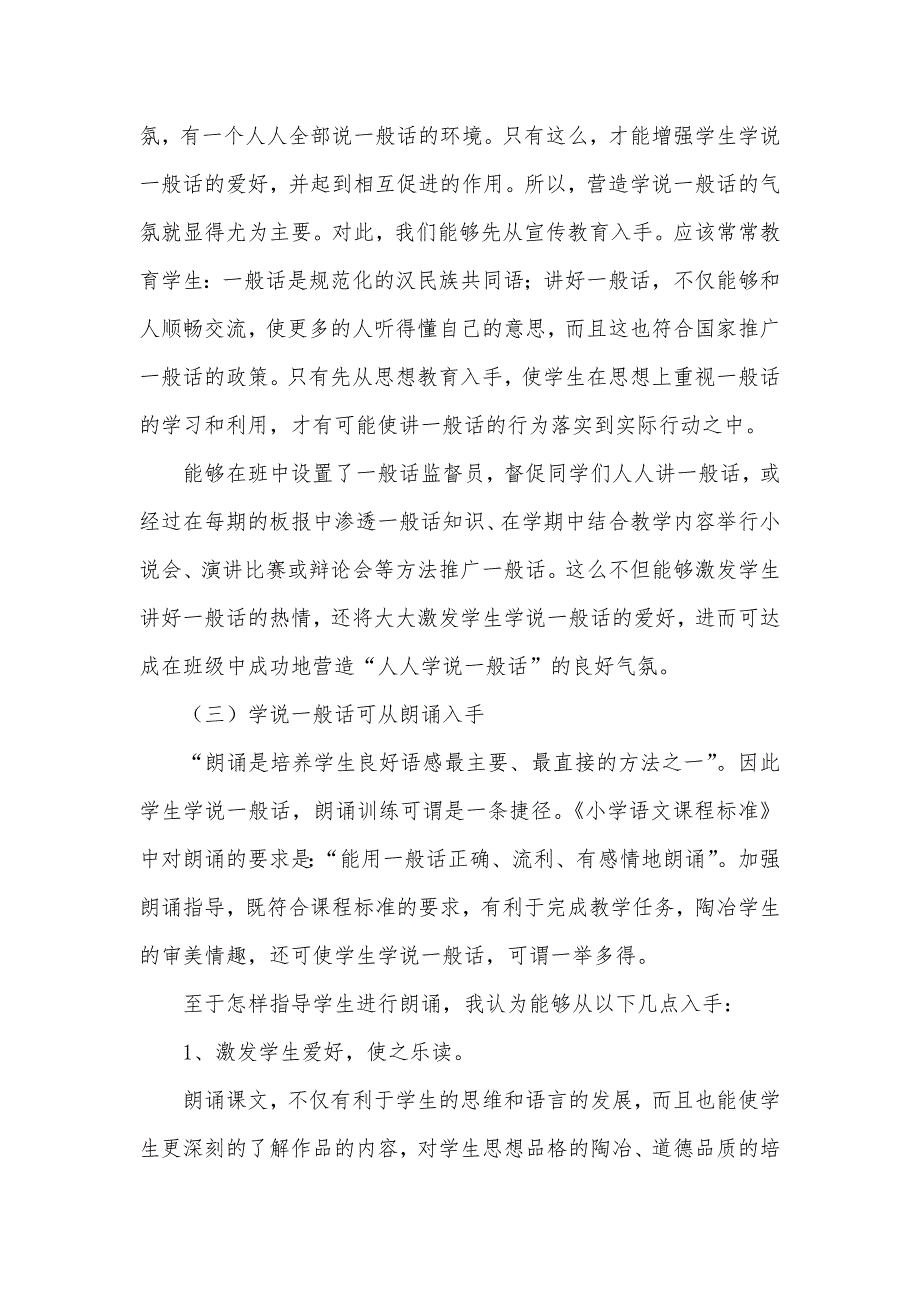 氛，有一个人人全部说一般话的环境。只有这么，才能增强学生学说
一般话的爱好，并起到相互促进的作用。所以，营造学说一般话的气
氛就显得尤为主要。对此，我们能够先从宣传教育入手。应该常常教
育学生：一般话是规范化的汉民族共同语；讲好一般话，不仅能够和
人顺畅交流，使更多的人听得懂自己的意思，而且这也符合国家推广
一般话的政策。只有先从思想教育入手，使学生在思想上重视一般话
的学习和利用，才有可能使讲一般话的行为落实到实际行动之中。
能够在班中设置了一般话监督员，督促同学们人人讲一般话，或
经过在每期的板报中渗透一般话知识、在学期中结合教学内容举行小
说会、演讲比赛或辩论会等方法推广一般话。这么不但能够激发学生
讲好一般话的热情，还将大大激发学生学说一般话的爱好，进而可达
成在班级中成功地营造“人人学说一般话”的良好气氛。
（三）学说一般话可从朗诵入手
“朗诵是培养学生良好语感最主要、最直接的方法之一”。因此
学生学说一般话，朗诵训练可谓是一条捷径。《小学语文课程标准》
中对朗诵的要求是：“能用一般话正确、流利、有感情地朗诵”。加强
朗诵指导，既符合课程标准的要求，有利于完成教学任务，陶冶学生
的审美情趣，还可使学生学说一般话，可谓一举多得。
至于怎样指导学生进行朗诵，我认为能够从以下几点入手：
1、激发学生爱好，使之乐读。
朗诵课文，不仅有利于学生的思维和语言的发展，而且也能使学
生更深刻的了解作品的内容，对学生思想品格的陶冶、道德品质的培